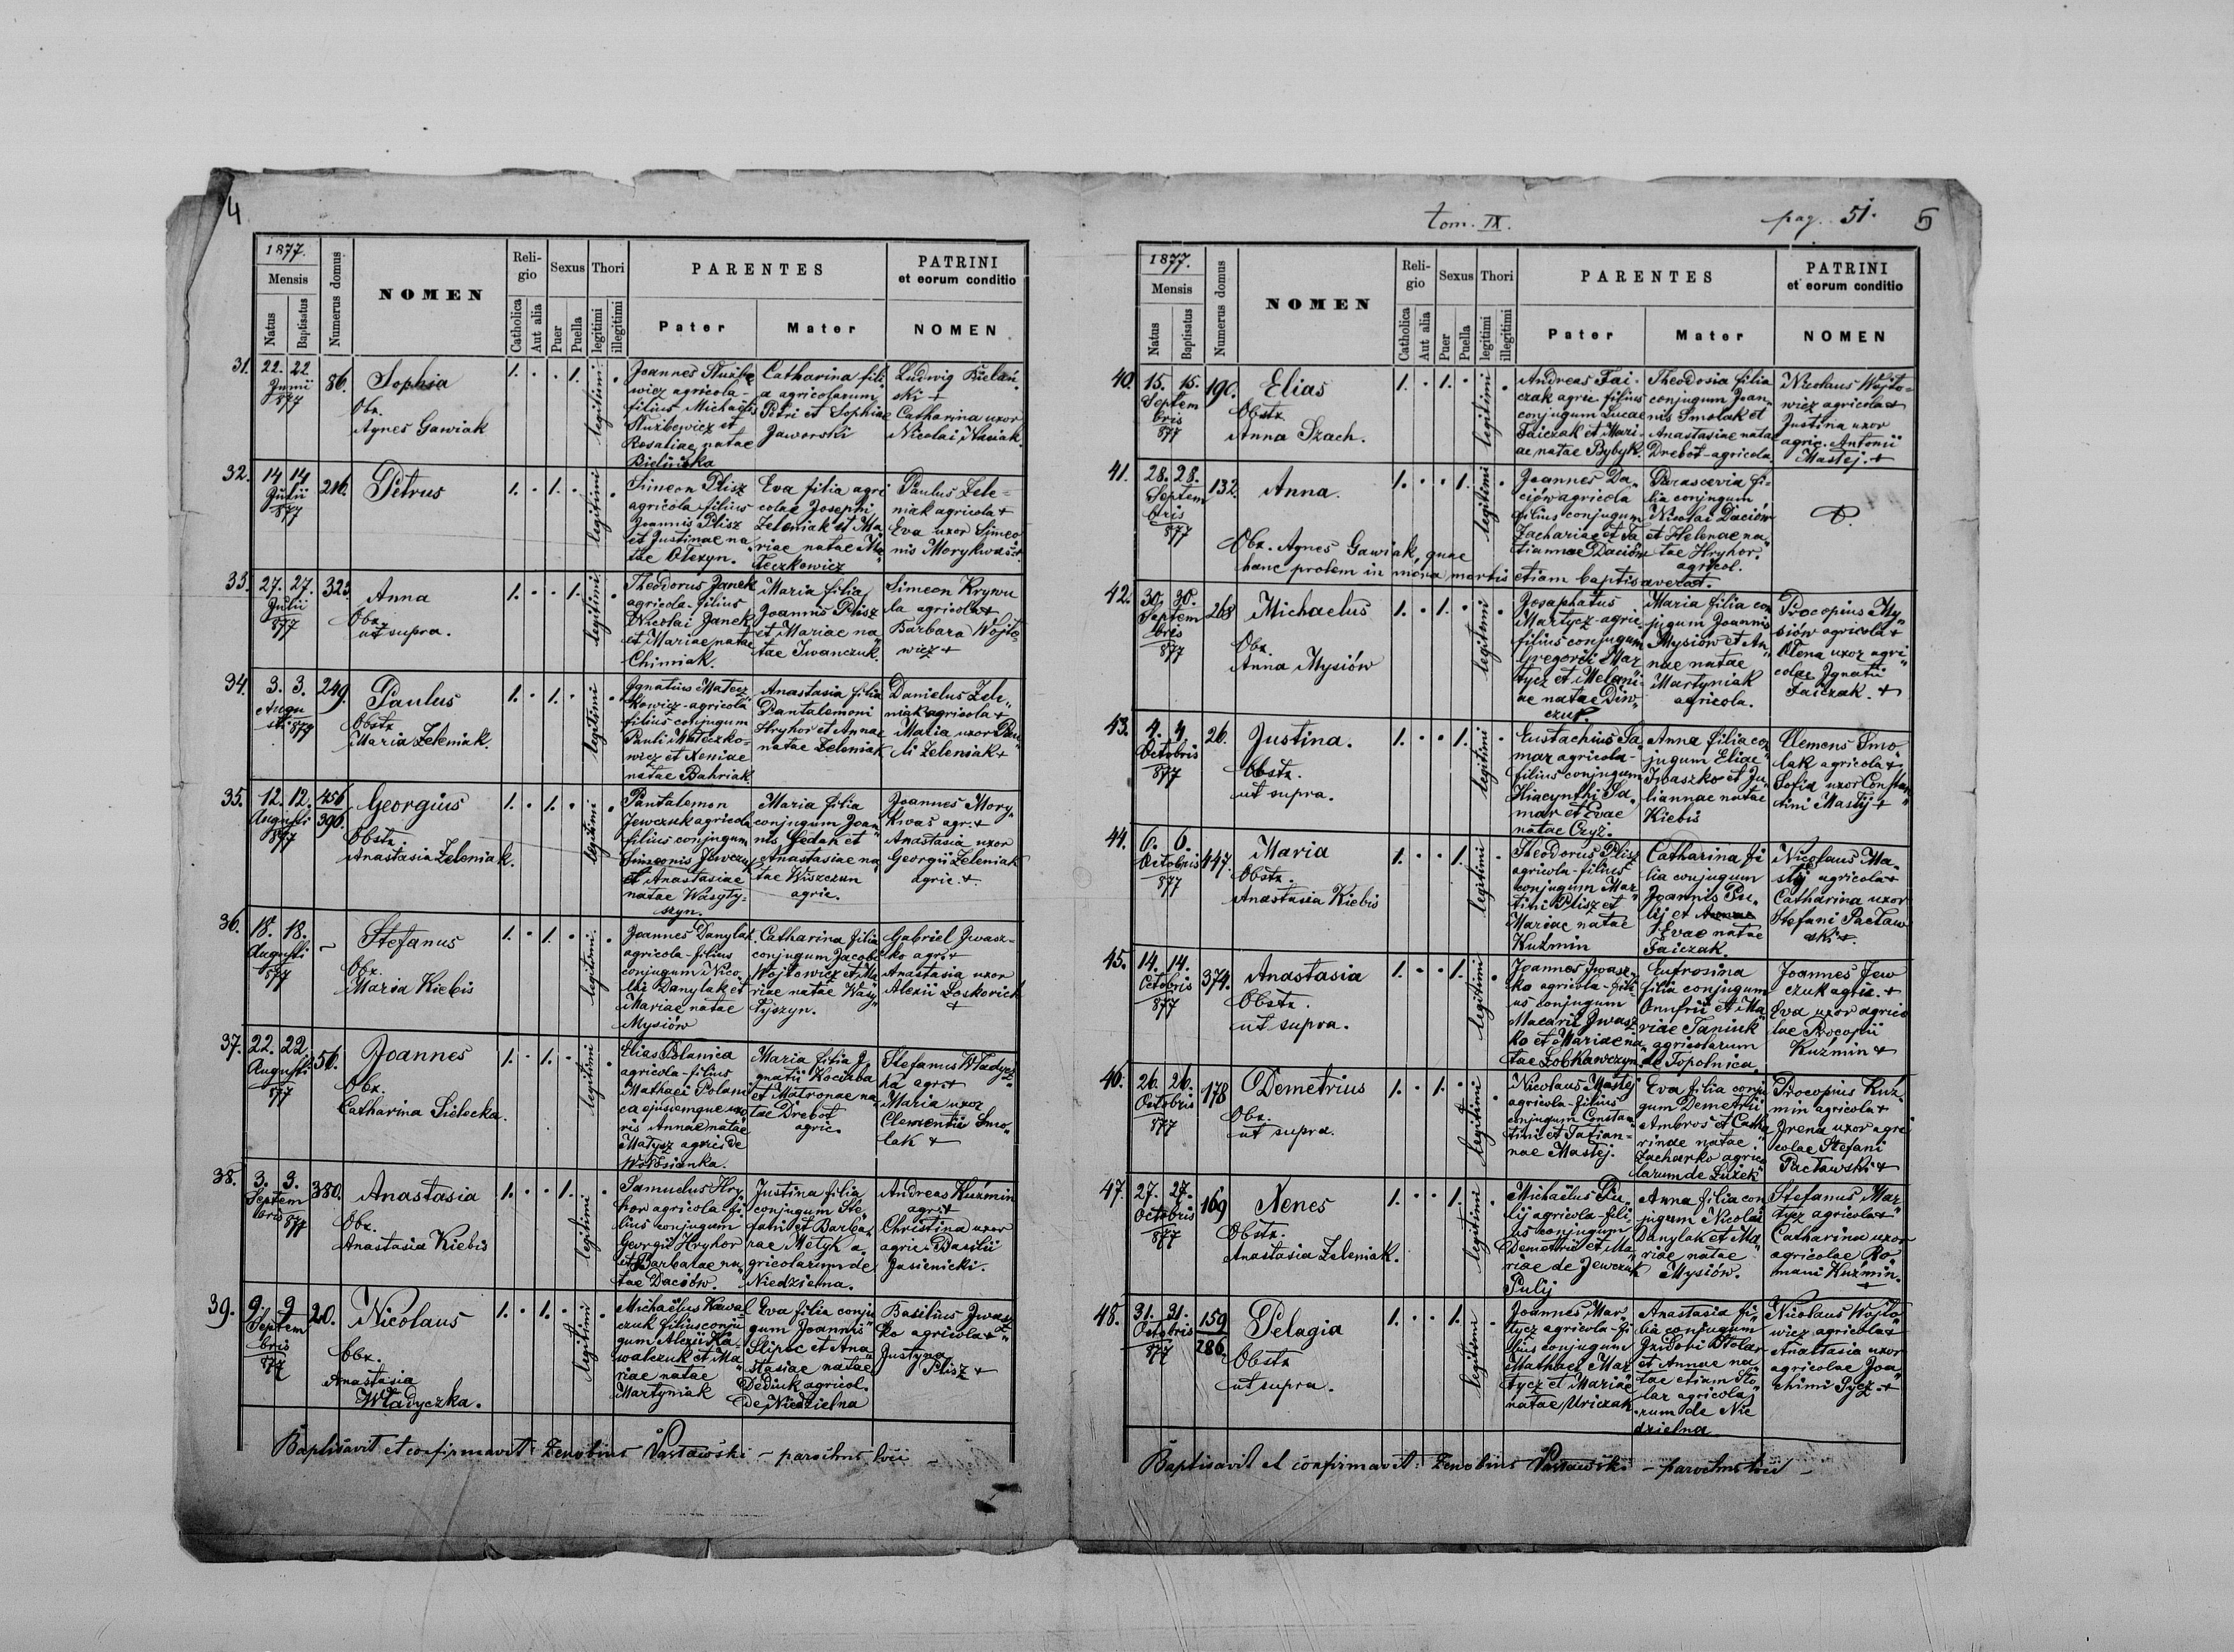 4
1877.
Mensis
Natus
Baptisatus
Numerus domus
NOMEN
Reli-
gio
Catholica
Aut alia
Sexus
Puer
Puella
Thori
legitimi
illegitimi
PARENTES
Pater
Mater
PATRINI
et eorum conditio
NOMEN
31.
22. 22
Junii
877
86.
Sophia
Obx.
Agnes Gawiak
1. . . 1. legitimi .
Joannes Służbe
wicz agricola-
filius Michaelis
Służbewicz et
Rosaliae natae
Bielińska
Catharina fili
a agricolarum
Petri et Sophiae
Jaworski
Ludwig Bielań
ski +
Catharina uxor
Nicolai Wasiak
32.
14 14
Julii
877
216.
Petrus
1. . 1. . legitimi .
Simeon Plisz
agricola filius
Joannis Plisz
et Justinae na
tae Olexyn.
Eva filia agri
colae Josephi
Zeleniak et Ma
riae natae Ma
teczkowicz
Paulus Zele=
niak agricola +
Eva uxor Simeo
nis Morykwas +
33.
27. 27.
Julii
877
323.
Anna
Obx.
ut supra.
1. . . 1. legitimi .
Theodorus Janek
agricola-filius
Nicolai Janek
et Mariae natae
Chimiak.
Maria filia
Joannis Plisz
et Mariae na
tae Iwanczuk.
Simeon Krywu
la agricola +
Barbara Wojto-
wicz +
34.
3. 3.
Augu
sti 877
249.
Paulus
Obstx
Maria Zeleniak.
1. . 1. . legitimi .
Ignatius Matecz
kowicz-agricola
filius conjugum
Pauli Mateczko-
wicz et Xeniae
natae Bahriak
Anastasia filia
Pantalemoni
Hryhor et Annae
natae Zeleniak
Danielus Zele
niak agricola +
Maria uxor Pau
li Zeleniak +
35.
12. 12.
Augusti
877
456
396.
Georgius
Obstx
Anastasia Zeleniak.
1. . 1. . legitimi .
Pantalemon
Jewczuk agricola
filius conjugum
Simeonis Jewczuk
et Anastasiae
natae Wasyty-
szyn.
Maria filia
conjugum Joan
nis Gedah et
Anastasiae na
tae Wiszczun
agric.
Joannes Mory
kwas agr. +
Anastasia uxor
Georgii Zeleniak
agric. +.
36.
18. 18.
Augusti
877
~
Stefanus
Obx.
Maria Kiebis
1. . 1. . legitimi .
Joannes Danylak
agricola-filius
conjugum Nico
lai Danylak et
Mariae natae
Mysiów
Catharina filia
conjugum Jacobi
Wojtowicz et Ma
riae natae Wasy
tyszyn.
Gabriel Iwasz-
ko agr. +
Anastasia uxor
Alexii Loskovich
+
37.
22. 22
Augusti
877
56.
Joannes
Obx.
Catharina Sielecka.
1. . 1. . legitimi .
Elias Polanica
agricola-filius
Mathaei Polani
ca ejusdemque uxo
ris Annae natae
Matysz agric de
Wołosianka.
Maria filia J
gnatii Kociuba
et Matronae na
tae Drebot
agric.
Stefanus Władycz
ka agr. +
Maria uxor
Clementii Smo
lak +
38.
3. 3.
Septem
bris 877
380.
Anastasia
Obx.
Anastasia Kiebis
1. . . 1. legitimi .
Samuelus Hry
hor agricola fi
lius conjugum
Georgii Hryhor
et Barbarae na
tae Daciów.
Justina filia
conjugum Ste
fani et Barba
rae Metyk a
gricolarum de
Niedzielna.
Andreas Kuźmin
agr. +
Christina uxor
agric. Basilii
Jasienicki.
39.
9. 9
Septem
bris
877
20.
Nicolaus
Obx.
Anastasia
Władyczka.
1. . 1. . legitimi .
Michaelus Kowal
czuk filius conju
gum Alexii Ko
walczuk et Ma
riae natae
Martyniak
Eva filia conju
gum Joannis
Slipec et Ana
stasiae natae
Dediuk agricol.
de Niedzielna
Basilius Iwasz
ko agricola +
Justyna
Plisz +
Baptisavit et confirmavit: Zenobius Pactawski - parochus loci -
tom. IX.
pag. 51.
5
1877.
Mensis
Natus
Baptisatus
Numerus domus
NOMEN
Reli-
gio
Catholica
Aut alia
Sexus
Puer
Puella
Thori
legitimi
illegitimi
PARENTES
Pater
Mater
PATRINI
et eorum conditio
NOMEN
40.
15. 15.
Septem
bris
877
190.
Elias
Obstx
Anna Szach.
1. . 1. . legitimi .
Andreas Fai-
czak agric filius
conjugum Lucae
Faiczak et Mari-
ae natae Bybyk.
Theodosia filia
conjugum Joan
nis Smolak et
Anastasiae natae
Drebot-agricola
Nicolaus Wojto=
wicz agricola +
Justina uxor
agric. Antonii
Mastej. +
41.
28. 28.
Septem
bris
877
132.
Anna.
Obx. Agnes Gawiak, quae
hanc prolem in mora mortis etiam baptisaverat.
1. . . 1. legitimi .
Joannes Da
ciów agricola
filius conjugum
Zachariae et Ta
tiannae Daciów
Parascevia fi-
lia conjugum
Nicolai Daciów
et Helenae na
tae Hryhor
agricol.
42.
30. 30.
Septem
bris
877
268
Michaelus
Obx.
Anna Mysiów
1. . 1. . legitimi .
Josaphatus
Martycz-agric-
filius conjugum
Gregorii Mar
tycz et Melani
ae natae Diw
czur.
Maria filia con
jugum Joannis
Mysiów et An
nae natae
Martyniak
agricola.
Procopius My
siów agricola +
Olena uxor agri
colae Ignatii
Faiczak. +
43.
4. 4.
Octobris
877
26.
Justina.
Obstx.
ut supra.
1. . . 1. legitimi .
Eustachius Sa
mar agricola-
filius conjugum
Hiacynthi Sa
mar et Evae
natae Czyż.
Anna filia con
jugum Eliae
Iwaszko et Ju
liannae natae
Kiebis
Clemens Smo
lak agricola +
Sofia uxor Constan
tini Mastij +
44.
6. 6.
Octobris
877
447.
Maria
Obstx.
Anastasia Kiebis
1. . . 1. legitimi .
Theodorus Plisz
agricola-filius
conjugum Mar
tini Plisz et
Mariae natae
Kuźmin
Catharina fi
lia conjugum
Joannis Pu
lij et Annae
Evae natae
Faiczak.
Nicolaus Ma
stij agricola +
Catharina uxor
Stefani Pacław
ski +.
45.
14. 14.
Octobris
877
374.
Anastasia
Obstx.
ut supra.
1. . . 1. legitimi .
Joannes Iwasz
ko agricola-fili
us conjugum
Macarii Iwasz
ko et Mariae na
tae Lobkawczyn.
Eufrosina
filia conjugum
Onufrii et Ma
riae Taniuk
agricolarum
de Topolnica
Joannes Jew
czuk agric. +
Eva uxor agrico
lae Procopii
Kuźmin +
46.
26. 26.
Octobris
877
178
Demetrius
Obx.
ut supra.
1. . 1. . legitimi .
Nicolaus Mastej
agricola-filius
conjugum Constan
tini et Tatian-
nae Mastej.
Eva filia conju
gum Demetrii
Ambros et Catha
rinae natae
Zacharko agrico
larum de Lużek
Procopius Kuź
min agricola +
Irena uxor agri
colae Stefani
Pacławski +
47.
27. 27.
Octobris
877
169
Nenes
Obstx.
Anastasia Zeleniak.
1. . . 1. legitimi .
Michaëlus Pu
lij agricola-fili
us conjugum
Demetrii et Ma
riae de Jewczuk
Pulij
Anna filia con
jugum Nicolai
Danylak et Ma
riae natae
Mysiów.
Stefanus Mar
tycz agricola +
Catharina uxor
agricolae Ro
mani Kuźmin.
+
48.
31. 31.
Octobris
877
159
286.
Pelagia
Obstx
ut supra.
1. . . 1. legitimi .
Joannes Mar
tycz agricola-fi
lius conjugum
Mathaei Mar
tycz et Mariae
natae Uriczak.
Anastasia fi
lia conjugum
Isidori Stolar
et Annae na
tae etiam Sto
lar agricola
rum de Nie
dzielna
Nicolaus Wojto
wicz agricola +
Anastasia uxor
agricolae Joa
chimi Pycz +
Baptisavit et confirmavit: Zenobius Pactawski - parochus loci -